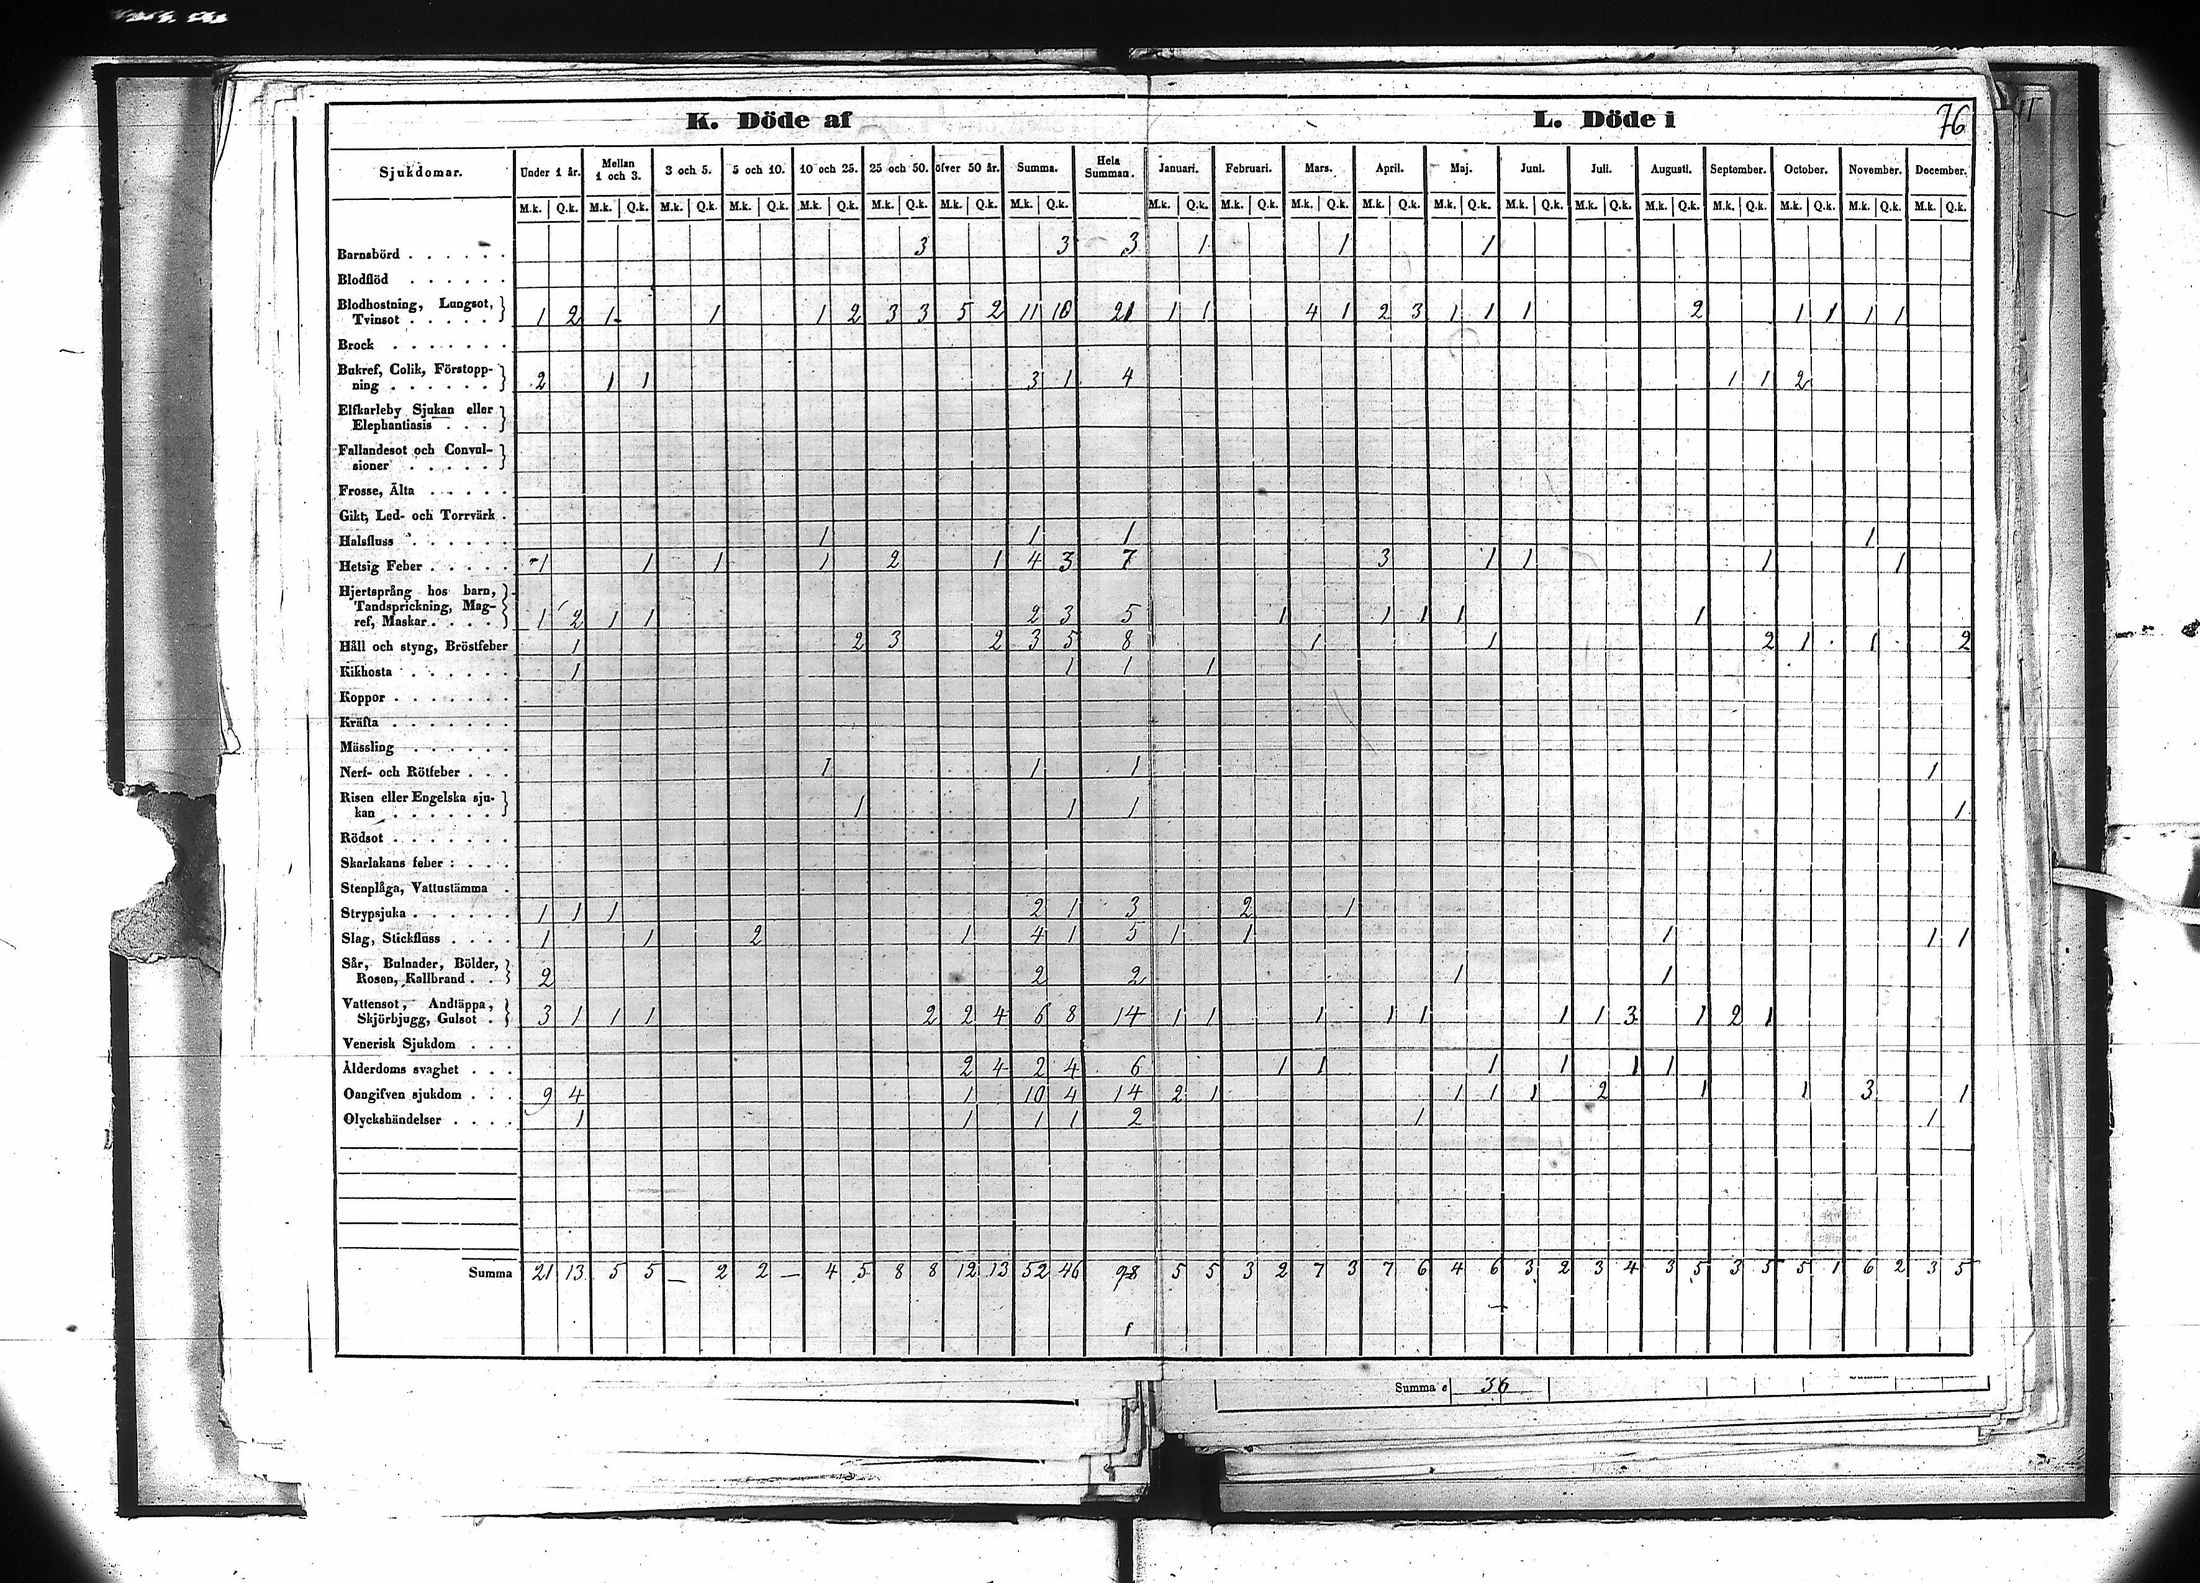 K. Döde af L. Döde i 76
Sjukdomar. Under 1 år. Mellan 1 och 3. 3 och 5. 5 och 10. 10 och 25. 25 och 50. öfver 50 år. Summa. Hela Summan. Januari. Februari. Mars. April. Maj. Juni. Juli. Augusti. September. October. November. December.
M.k. Q.k. M.k. Q.k. M.k. Q.k. M.k. Q.k. M.k. Q.k. M.k. Q.k. M.k. Q.k. M.k. Q.k. M.k. Q.k. M.k. Q.k. M.k. Q.k. M.k. Q.k. M.k. Q.k. M.k. Q.k. M.k. Q.k. M.k. Q.k. M.k. Q.k. M.k. Q.k. M.k. Q.k. M.k. Q.k.
Barnsbörd 3 3 3 1 1 1
Blodflöd
Blodhostning, Lungsot,
Tvinsot 1 2 1 1 1 2 3 3 5 2 11 10 21 1 1 4 1 2 3 1 1 1 2 1 1 1 1
Brock
Bukref, Colik, Förstopp-
ning 2 1 1 3 1 4 1 1 2
Elfkarleby Sjukan eller
Elephantiasis
Fallandesot och Convul-
sioner
Frosse, Älta
Gikt, Led- och Torrvärk
Halsfluss 1 1 1 1
Hetsig Feber 1 1 1 1 2 1 4 3 7 3 1 1 1 1
Hjertsprång hos barn,
Tandsprickning, Mag-
ref, Maskar 1 2 1 1 2 3 5 1 1 1 1 1
Håll och styng, Bröstfeber 1 2 3 2 3 5 8 1 1 2 1 1 2
Kikhosta 1 1 1 1
Koppor
Kräfta
Mässling
Nerf- och Rötfeber 1 1 1 1
Risen eller Engelska sju-
kan 1 1 1 1
Rödsot
Skarlakans feber
Stenplåga, Vattustämma
Strypsjuka 1 1 1 2 1 3 2 1
Slag, Stickfluss 1 1 2 1 4 1 5 1 1 1 1 1
Sår, Bulnader, Bölder,
Rosen, Kallbrand 2 2 2 1 1
Vattensot, Andtäppa,
Skjörbjugg, Gulsot 3 1 1 1 2 2 4 6 8 14 1 1 1 1 1 1 1 3 1 2 1
Venerisk Sjukdom
Ålderdoms svaghet 2 4 2 4 6 1 1 1 1 1 1
Oangifven sjukdom 9 4 1 10 4 14 2 1 1 1 1 2 1 1 3 1
Olyckshändelser 1 1 1 1 2 1 1
Summa 21 13 5 5 — 2 2 — 4 5 8 8 12 13 52 46 98 5 5 3 2 7 3 7 6 4 6 3 2 3 4 3 5 3 5 5 1 6 2 3 5
Summa 36